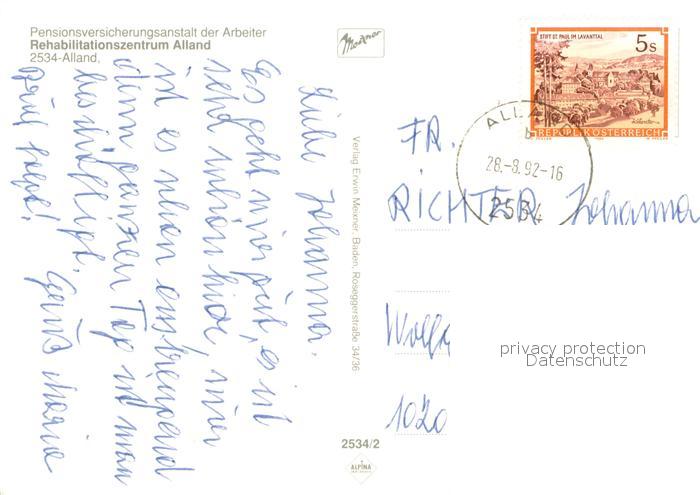 Pensionsversicherungsanstalt der Arbeiter
Rehabilitationszentrum Alland
2534-Alland,
Liebe Johanna,
Es geht mir gut, es ist
sehr schön hier, nur
ist es schon anstrengend
denn ganzen Tag ist man
beschäftigt. Gruß Maria
Verlag Erwin Meixner, Baden, Roseggerstraße 34/36
2534/2
ALPINA
Meixner
STIFT ST. PAUL IM LAVANTTAL
5 S
REPUBLIK ÖSTERREICH
ALLAND
b
28.-8.92-16
2534
FR.
RICHTER Johanna
1020
privacy protection
Datenschutz